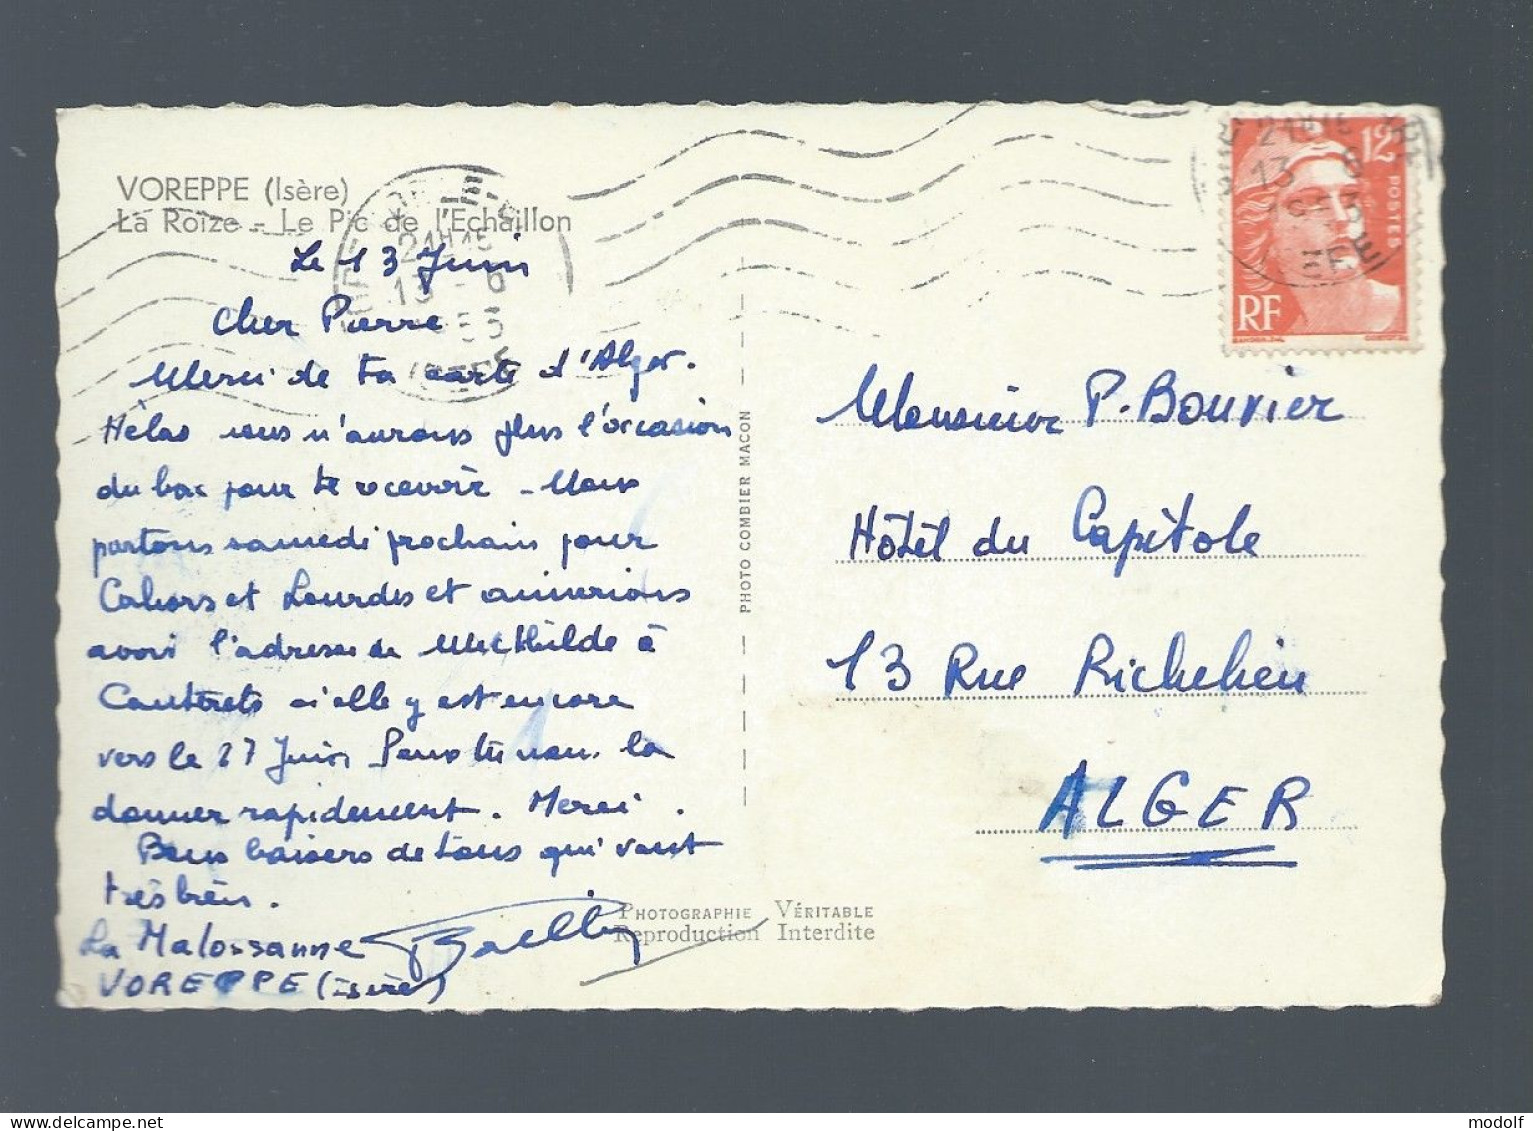 VOREPPE (Isère)
La Roïze - Le Pic de l'Echaillon
Le 13 Juin
Cher Pierre
Merci de ta carte d'Alger.
Hélas nous n'aurons plus l'occasion
du bac pour te recevoir - Nous
partons samedi prochain pour
Cahors et Lourdes et aimerions
avoir l'adresse de Mathilde à
Cauterets si elle y est encore
vers le 27 Juin Peux tu nous la
donner rapidement. Merci.
Bons baisers de tous qui vont
très bien.
La Malossanne
VOREPPE (isère)
PHOTO COMBIER MACON
PHOTOGRAPHIE VÉRITABLE
Reproduction Interdite
21H15
13 - 6
ISERE
12F
POSTES
RF
Monsieur P. Bouvier
Hôtel du Capitole
13 Rue Richelieu
ALGER
modolf